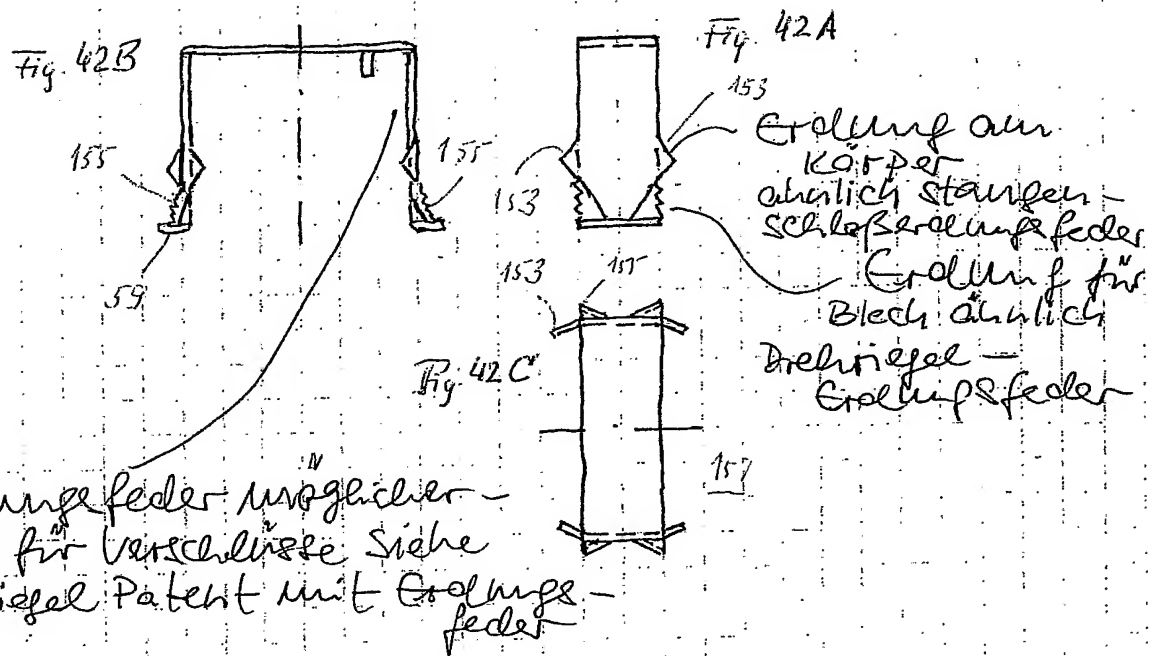 Fig. 42B
Fig. 42A
155
155
59
153
153
Erdung am
Körper
ähnlich Stangen-
schloßerdungsfeder
Erdung für
Blech ähnlich
Drehriegel-
Erdungsfeder
153
155
Fig. 42C
157
ungsfeder möglicher-
für Verschlüsse siehe
iegel Patent mit Erdungs-
feder